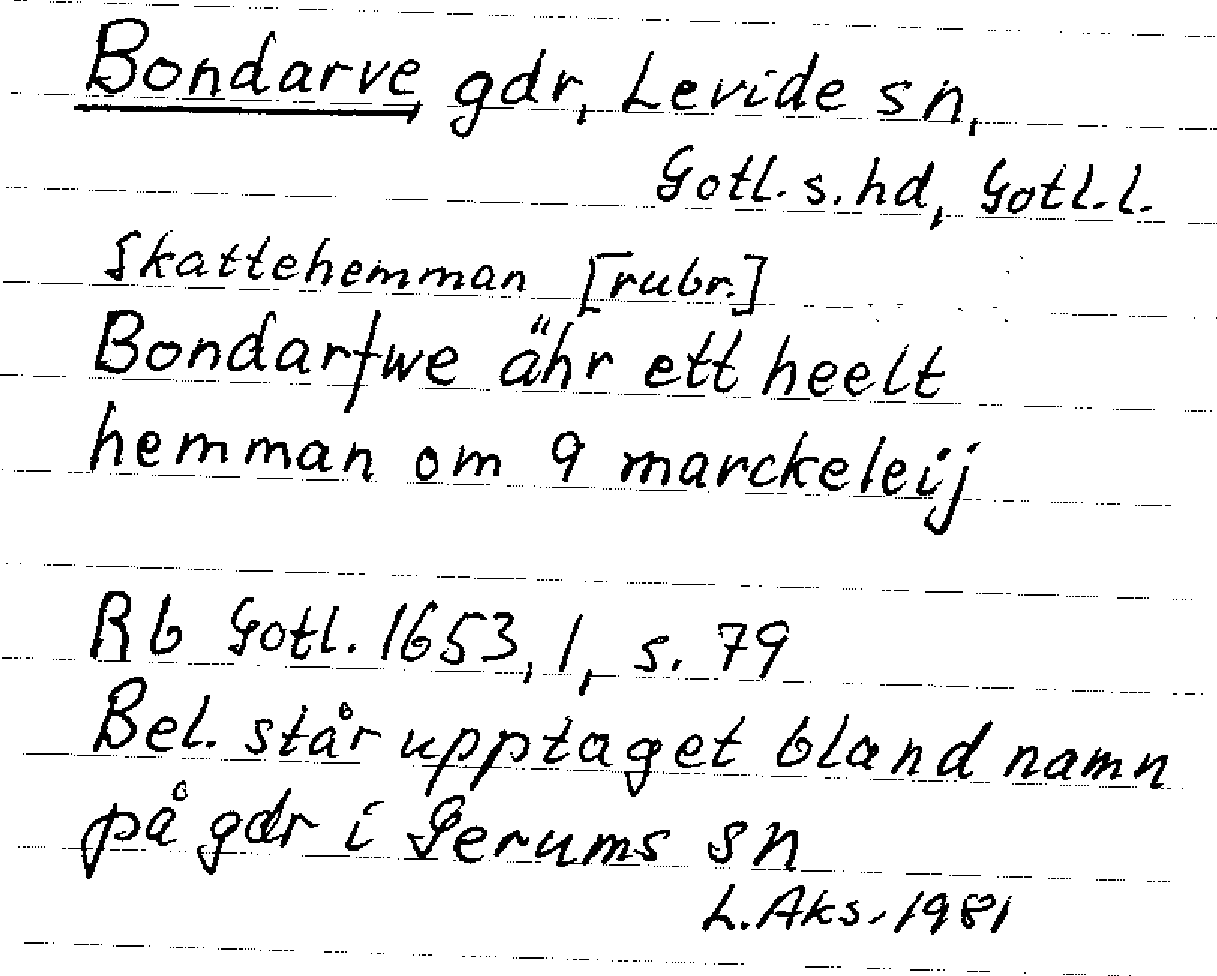 Bondarve gdr, Levide sn,
Gotl. s. hd, Gotl. l.
Skattehemman [rubr.]
Bondarfwe ähr ett heelt
hemman om 9 marckeleij
Rb Gotl. 1653, 1, s. 79
Bel. står upptaget bland namn
på gdr i Gerums sn
L. Aks. 1981